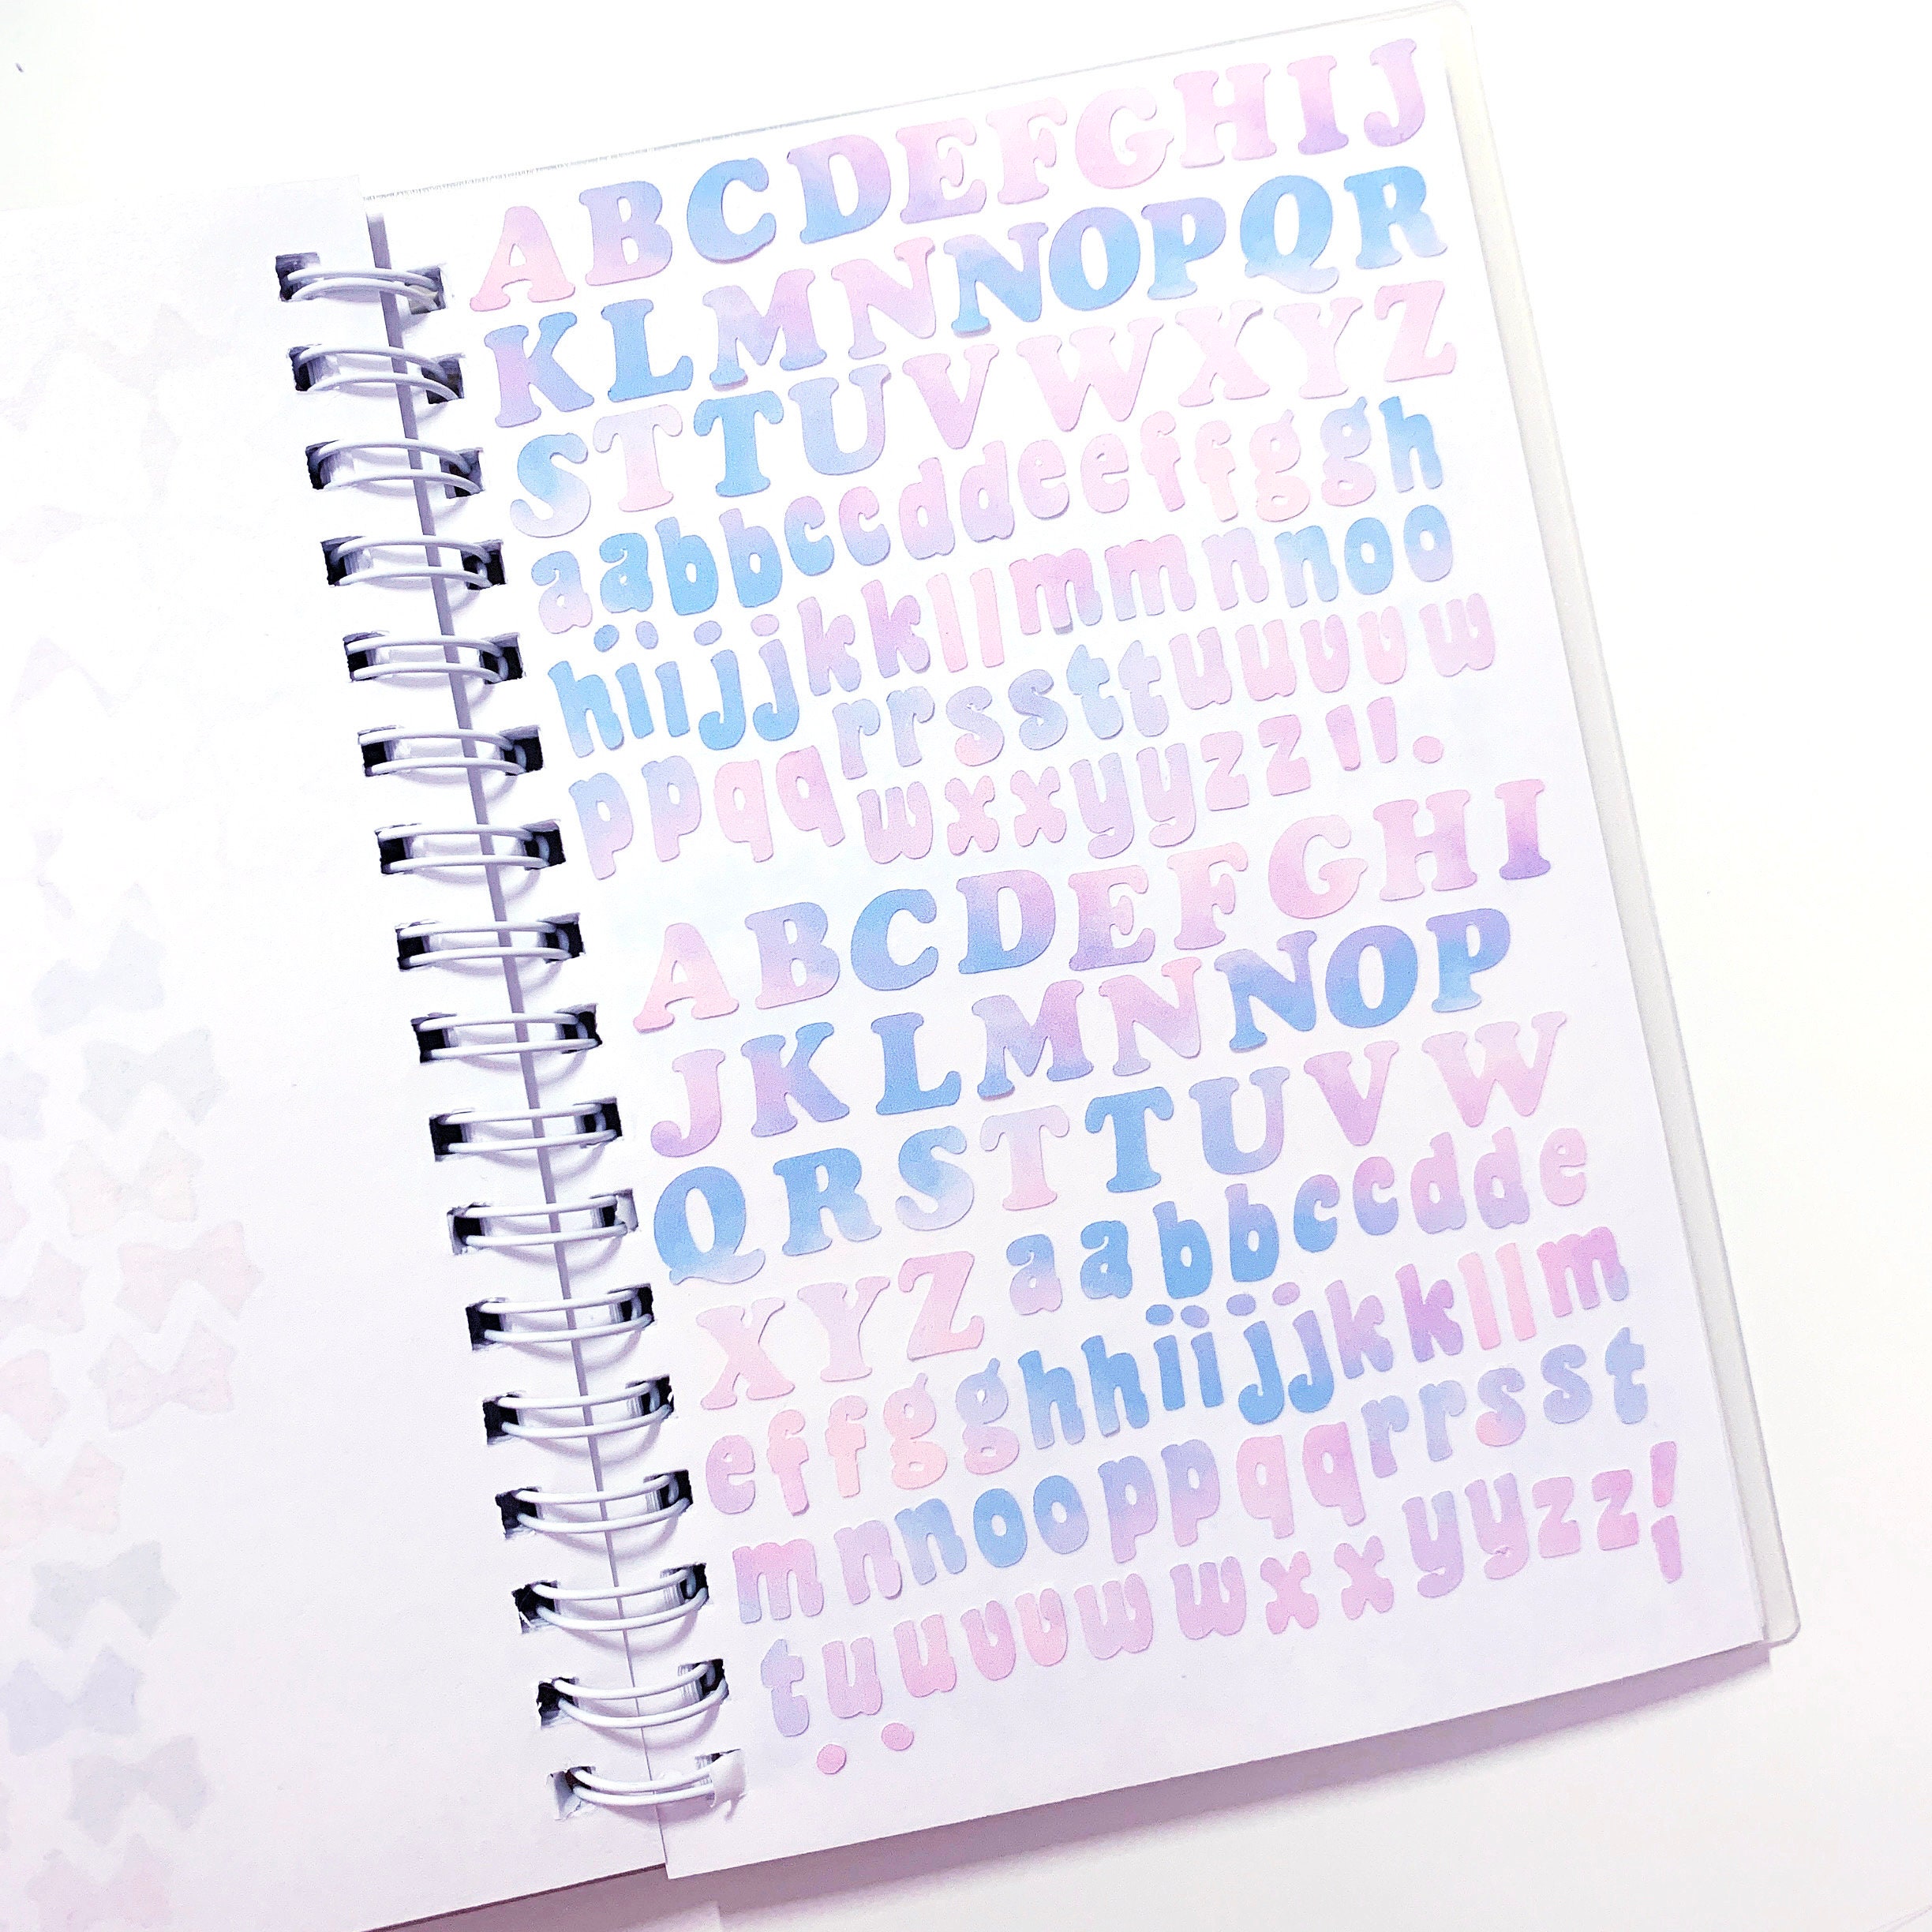 ABCDEFGHIJ
KLMNNOPQR
STTUVWXYZ
aabbccddeeffggh
hiijjkkllmmnnoo
ppqqrrssttuuvvw
wxxyyzz!!.
ABCDEFGHI
JKLMNNOP
QRSTTUVW
XYZaabbccdde
effgghhiijjkkllm
mnnooppqqrrsst
tuuvvwwxxyyzz!
..